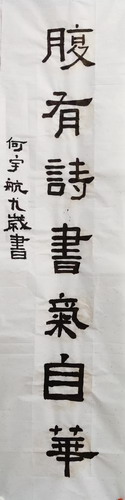 腹有詩書氣自華
何宇航九歲書